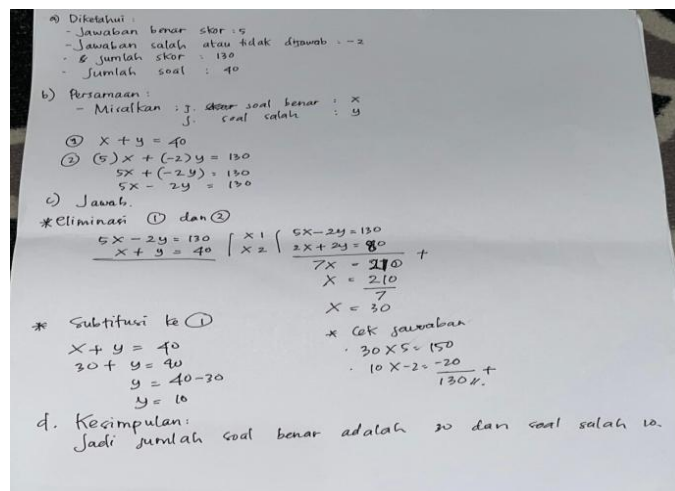 a) Diketahui :
- Jawaban benar skor : 5
- Jawaban salah atau tidak dijawab : -2
- Jumlah skor : 130
- Jumlah soal : 40
b) Persamaan :
- Misalkan : J. soal benar : x
J. soal salah : y
① x + y = 40
② (5)x + (-2)y = 130
5x + (-2y) = 130
5x - 2y = 130
c) Jawab.
* eliminasi ① dan ②
5x - 2y = 130 | x 1 | 5x - 2y = 130
x + y = 40 | x 2 | 2x + 2y = 80 +
7x = 210
x = 210
7
x = 30
* Subtitusi ke ①
x + y = 40
30 + y = 40
y = 40 - 30
y = 10
* Cek jawaban
· 30 x 5 = 150
· 10 x -2 = -20 +
130 //.
d. Kesimpulan:
Jadi jumlah soal benar adalah 30 dan soal salah 10.